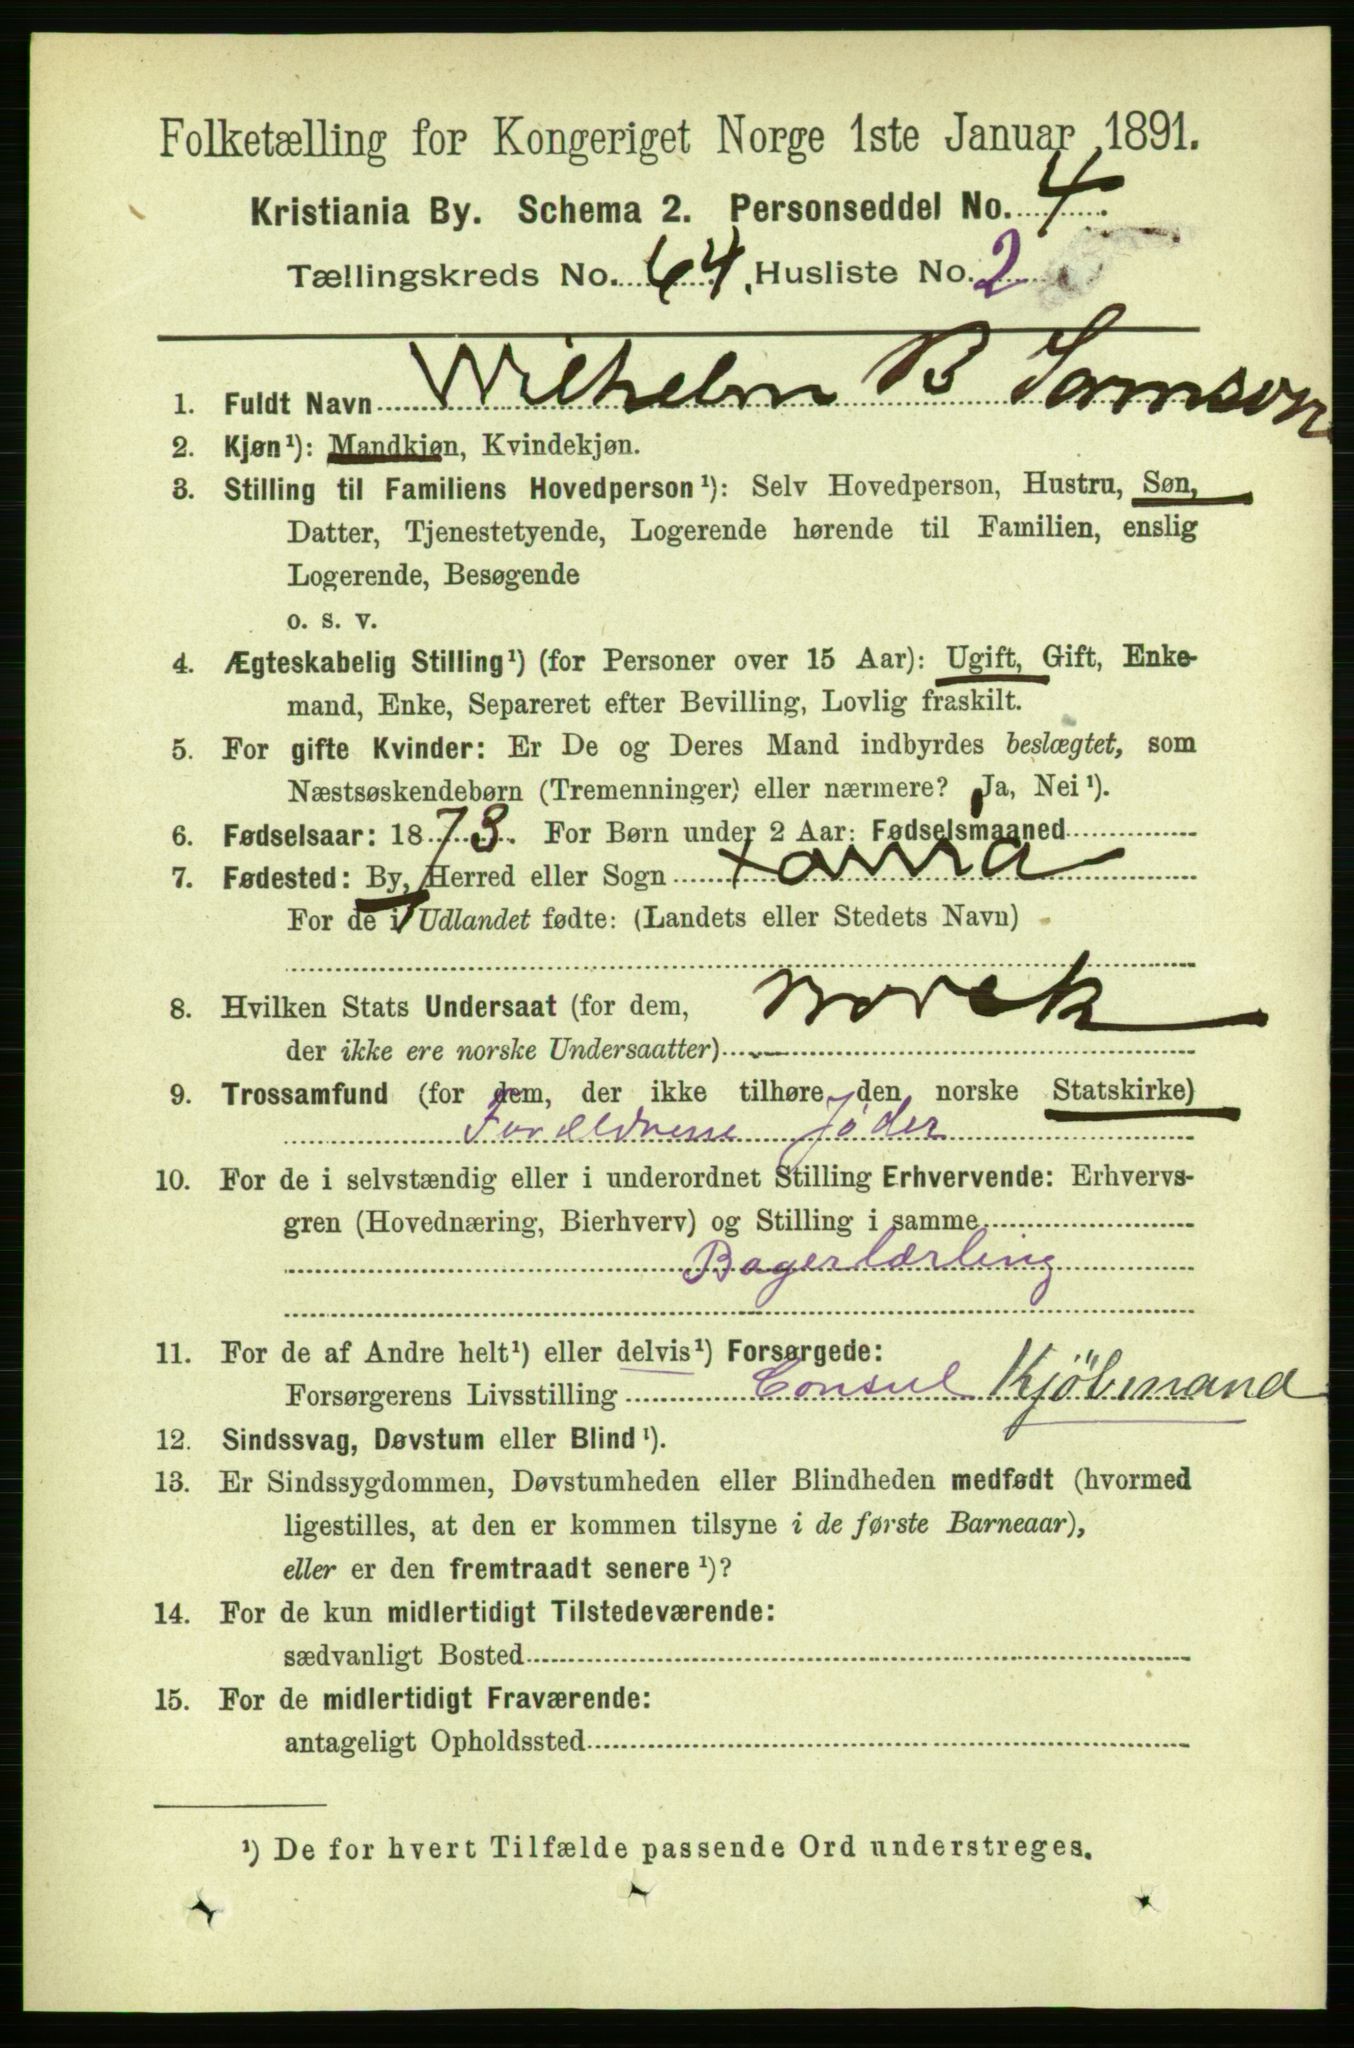 Folketælling for Kongeriget Norge 1ste Januar 1891.
Kristiania By. Schema 2. Personseddel No. 4
Tællingskreds No. 64. Husliste No. 2
1. Fuldt Navn Wilhelm B Samson
2. Kjøn¹): Mandkjøn, Kvindekjøn.
3. Stilling til Familiens Hovedperson¹): Selv Hovedperson, Hustru, Søn,
Datter, Tjenestetyende, Logerende hørende til Familien, enslig
Logerende, Besøgende
o. s. v.
4. Ægteskabelig Stilling¹) (for Personer over 15 Aar): Ugift, Gift, Enke-
mand, Enke, Separeret efter Bevilling, Lovlig fraskilt.
5. For gifte Kvinder: Er De og Deres Mand indbyrdes beslægtet, som
Næstsøskendebørn (Tremenninger) eller nærmere? Ja, Nei¹).
6. Fødselsaar: 1873. For Børn under 2 Aar: Fødselsmaaned
7. Fødested: By, Herred eller Sogn
For de i Udlandet fødte: (Landets eller Stedets Navn)
8. Hvilken Stats Undersaat (for dem, Norsk
der ikke ere norske Undersaatter)
9. Trossamfund (for dem, der ikke tilhøre den norske Statskirke)
Forældrene Jøder
10. For de i selvstændig eller i underordnet Stilling Erhvervende: Erhvervs-
gren (Hovednæring, Bierhverv) og Stilling i samme
Bagerlærling
11. For de af Andre helt¹) eller delvis¹) Forsørgede:
Forsørgerens Livsstilling Consul Kjöbmand
12. Sindssvag, Døvstum eller Blind¹).
13. Er Sindssygdommen, Døvstumheden eller Blindheden medfødt (hvormed
ligestilles, at den er kommen tilsyne i de første Barneaar),
eller er den fremtraadt senere¹)?
14. For de kun midlertidigt Tilstedeværende:
sædvanligt Bosted
15. For de midlertidigt Fraværende:
antageligt Opholdssted
¹) De for hvert Tilfælde passende Ord understreges.